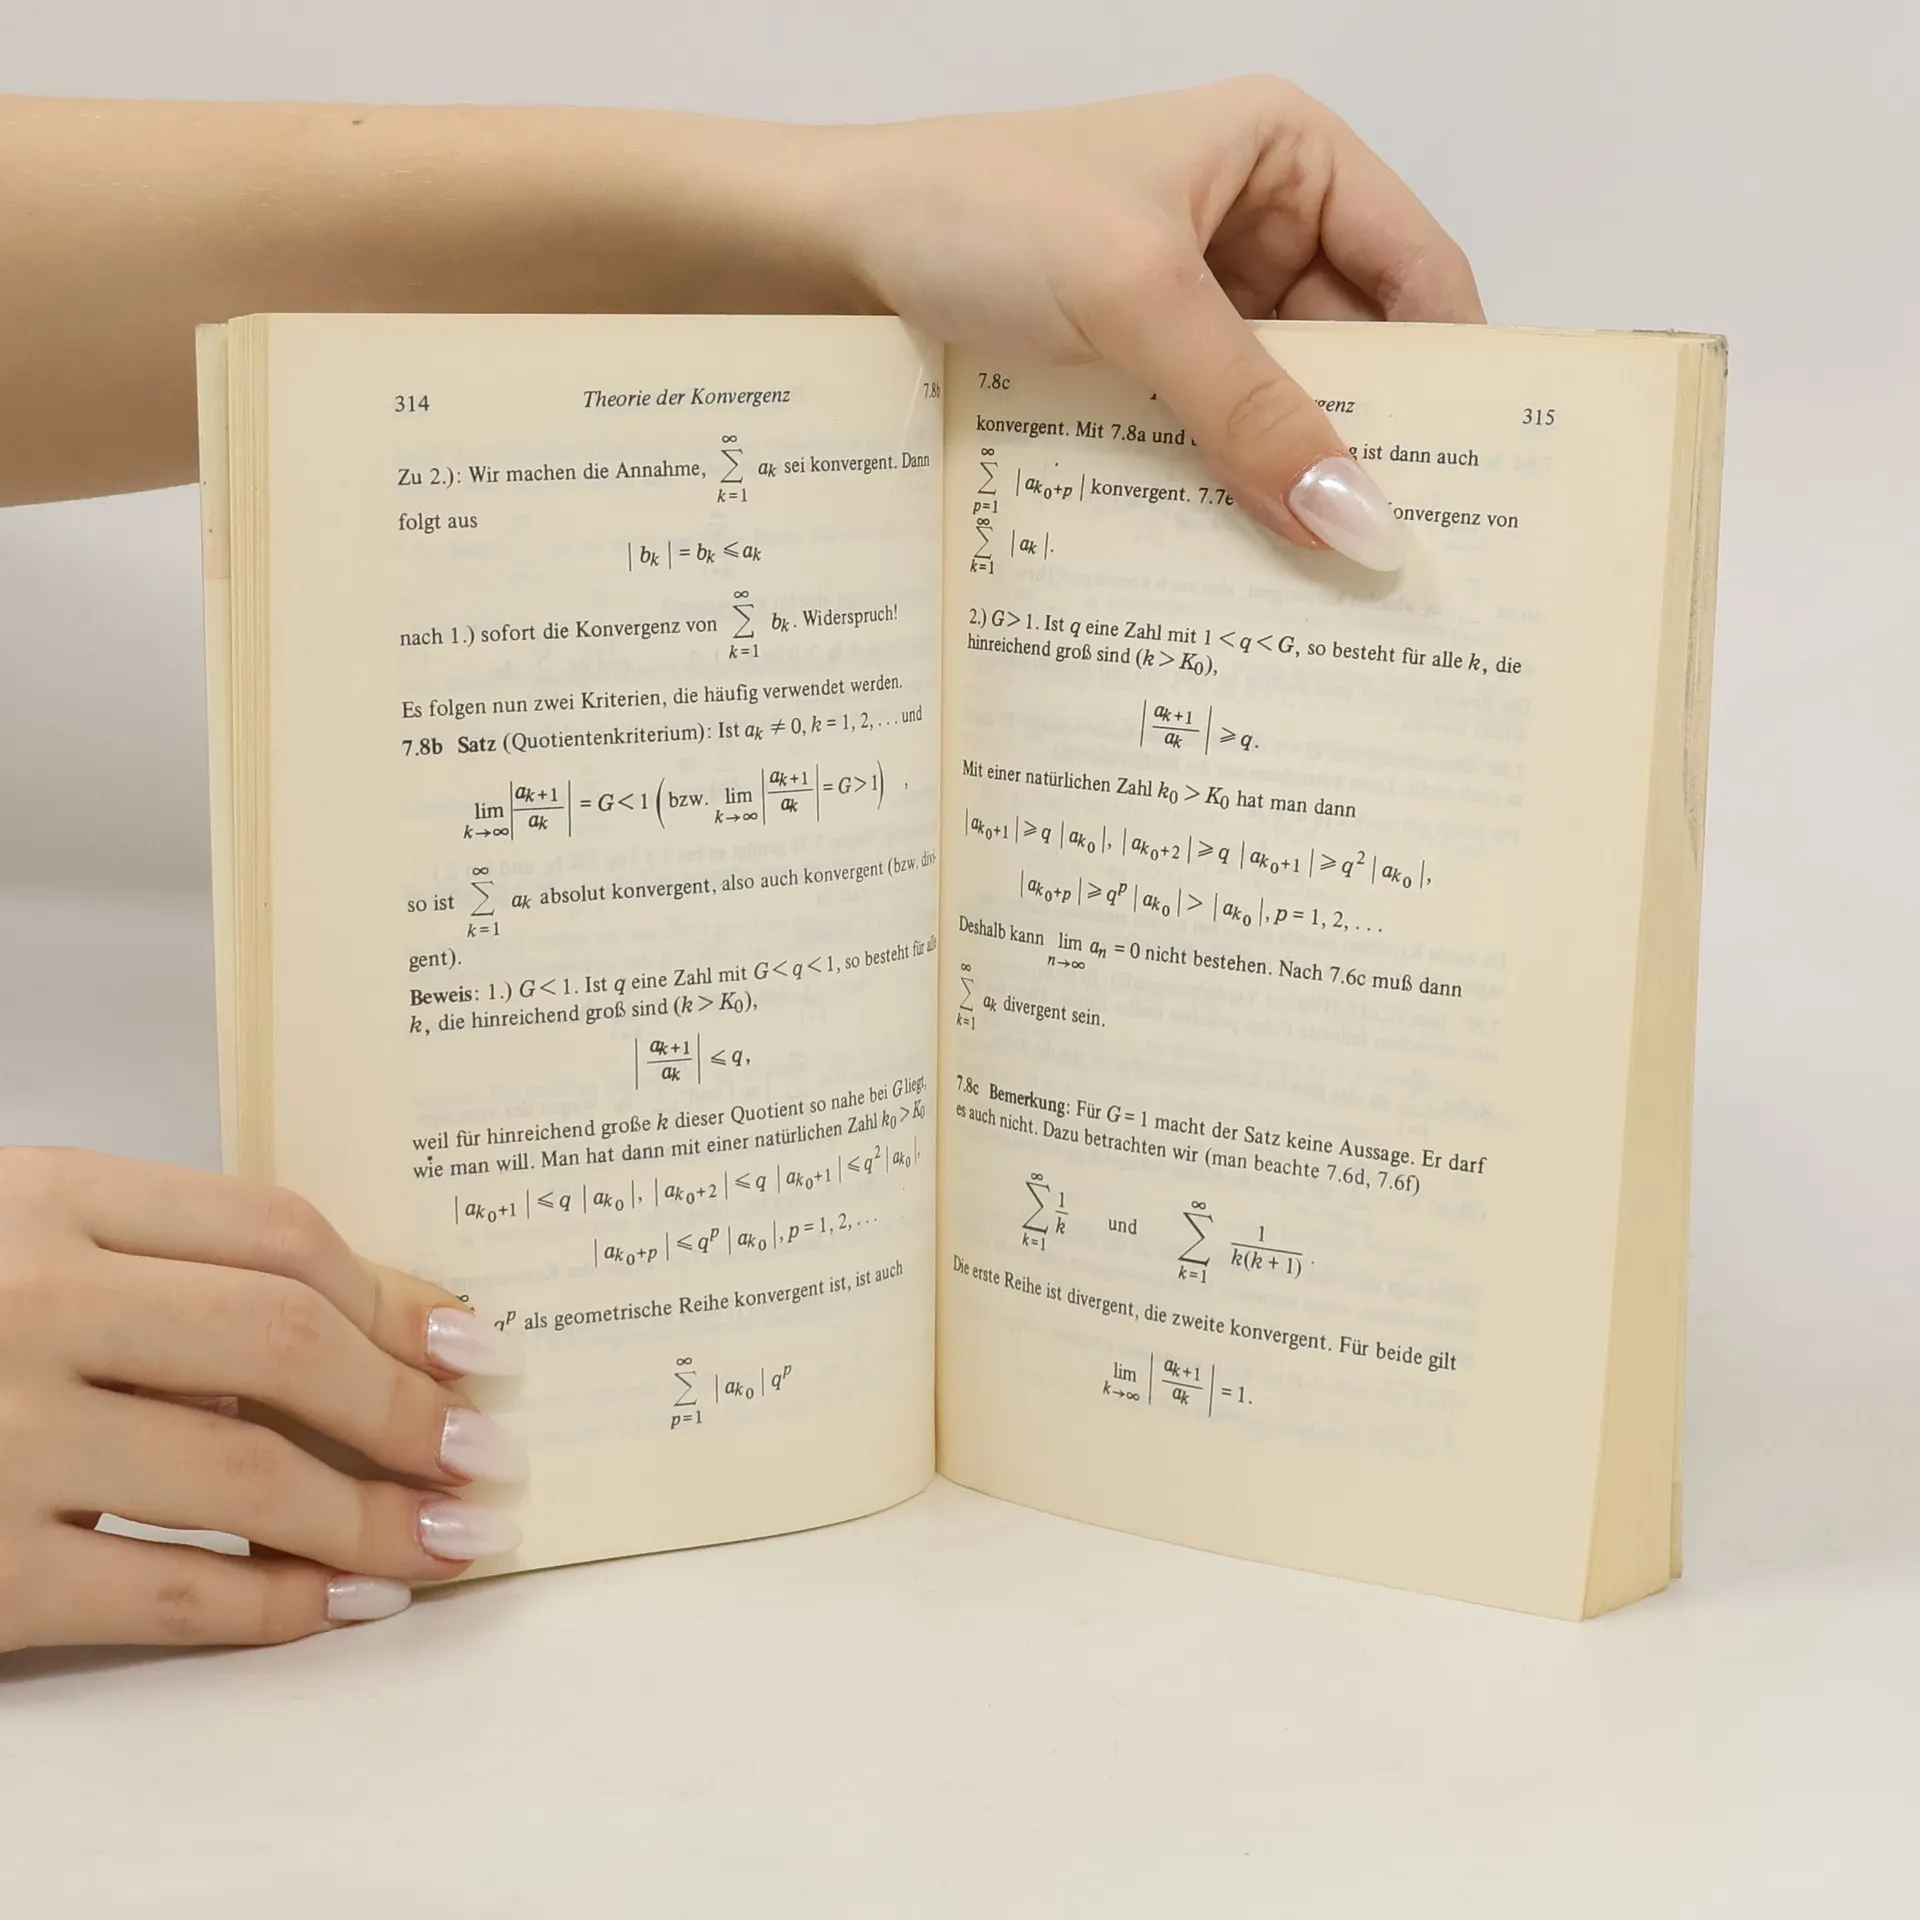 314 Theorie der Konvergenz 7.8b
Zu 2.): Wir machen die Annahme, ∑_{k=1}^{∞} a_k sei konvergent. Dann
folgt aus
|b_k| = b_k ⩽ a_k
nach 1.) sofort die Konvergenz von ∑_{k=1}^{∞} b_k. Widerspruch!
Es folgen nun zwei Kriterien, die häufig verwendet werden.
7.8b Satz (Quotientenkriterium): Ist a_k ≠ 0, k = 1, 2, ... und
lim_{k→∞} |a_{k+1}/a_k| = G < 1 (bzw. lim_{k→∞} |a_{k+1}/a_k| = G > 1),
so ist ∑_{k=1}^{∞} a_k absolut konvergent, also auch konvergent (bzw. diver-
gent).
Beweis: 1.) G < 1. Ist q eine Zahl mit G < q < 1, so besteht für alle
k, die hinreichend groß sind (k > K_0),
|a_{k+1}/a_k| ⩽ q,
weil für hinreichend große k dieser Quotient so nahe bei G liegt,
wie man will. Man hat dann mit einer natürlichen Zahl k_0 > K_0
|a_{k_0+1}| ⩽ q |a_{k_0}|, |a_{k_0+2}| ⩽ q |a_{k_0+1}| ⩽ q^2 |a_{k_0}|,
|a_{k_0+p}| ⩽ q^p |a_{k_0}|, p = 1, 2, ...
q^p als geometrische Reihe konvergent ist, ist auch
∑_{p=1}^{∞} |a_{k_0}| q^p
7.8c 315
konvergent. Mit 7.8a und ist dann auch
∑_{p=1}^{∞} |a_{k_0+p}| konvergent. 7.7e von
∑_{k=1}^{∞} |a_k|.
2.) G > 1. Ist q eine Zahl mit 1 < q < G, so besteht für alle k, die
hinreichend groß sind (k > K_0),
|a_{k+1}/a_k| ⩾ q.
Mit einer natürlichen Zahl k_0 > K_0 hat man dann
|a_{k_0+1}| ⩾ q |a_{k_0}|, |a_{k_0+2}| ⩾ q |a_{k_0+1}| ⩾ q^2 |a_{k_0}|,
|a_{k_0+p}| ⩾ q^p |a_{k_0}| > |a_{k_0}|, p = 1, 2, ...
Deshalb kann lim_{n→∞} a_n = 0 nicht bestehen. Nach 7.6c muß dann
∑_{k=1}^{∞} a_k divergent sein.
7.8c Bemerkung: Für G = 1 macht der Satz keine Aussage. Er darf
es auch nicht. Dazu betrachten wir (man beachte 7.6d, 7.6f)
∑_{k=1}^{∞} 1/k und ∑_{k=1}^{∞} 1/(k(k + 1)).
Die erste Reihe ist divergent, die zweite konvergent. Für beide gilt
lim_{k→∞} |a_{k+1}/a_k| = 1.